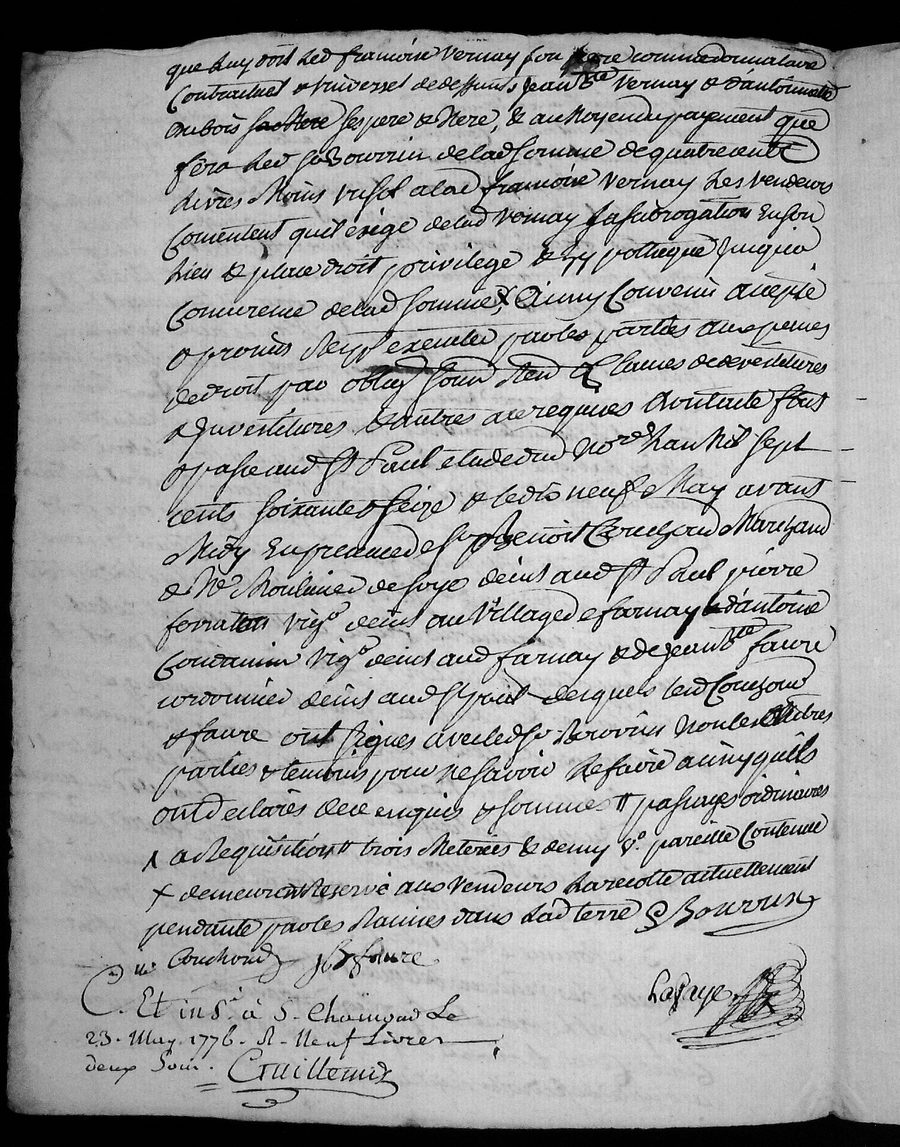 que luy doit led françoise Vernay son pere comme donnataire
Contractuel & Universel de deffunts Jean Bte Vernay & d'antoinette
dubois ses pere & Mere, & au Moyen du payement que
fera led sr Bourrin de lad somme de quatre cents
Livres Moins un sol a lad françoise Vernay Les vendeurs
Consentent qu'il exige de lad Vernay sa subrogation En son
Lieu & place droit privilege & hypotheque Jusqu'a
Concurence de lad somme, Ainsy Convenu accepté
& promis Resp. executer par les parties aux peines
de droit par oblig. soum. Ren. & Clauses de devestitures
& Investitures & autres a ce requises dont acte fait
& passé aud St Paul etude dud Nore L'an Mil sept
cents soixante & seize & le dix neuf May avant
Midy En presence de Sr Benoit Couchoud Marchand
& Me Moulinier de soye demt aud St Paul pierre
ferraton vig. demt au Village de farnay d'antoine
Condamin vig. demt aud farnay & de Jean Bte faure
cordonnier demt aud St paul desquels led Couchoud
& faure ont signés avec led Sr Bourrin Non les autres
parties & temoins pour ne savoir Le faire ainsy qu'ils
ont Declarés de ce enquis & sommés // passages ordinaires
a Requisition // trois Meterées & demy pareille Contenue
+ demeurent Reservé aux Vendeurs La recolte actuellement
pendante par les Racines dans Lad terre Bourrin
Couchoud JB faure
Lafaye
C. Et ins. à S. Chamond Le
23. May. 1776. R. Neuf Livres
deux Sous. Guillemin